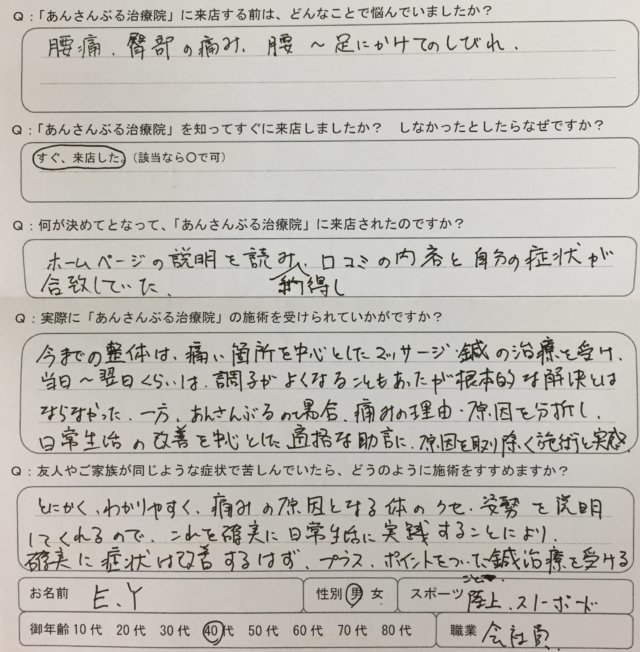 Q：「あんさんぶる治療院」に来店する前は、どんなことで悩んでいましたか？
腰痛、臀部の痛み、腰～足にかけてのしびれ．
Q：「あんさんぶる治療院」を知ってすぐに来店しましたか？　しなかったとしたらなぜですか？
すぐ、来店した。（該当なら〇で可）
Q：何が決めてとなって、「あんさんぶる治療院」に来店されたのですか？
ホームページの説明を読み、口コミの内容と自分の症状が
合致していた、　納得し
Q：実際に「あんさんぶる治療院」の施術を受けられていかがですか？
今までの整体は、痛い箇所を中心としたマッサージ・鍼の治療を受け、
当日～翌日くらいは、調子がよくなることもあったが根本的な解決とは
ならなかった．一方、あんさんぶるの場合、痛みの理由・原因を分析し、
日常生活の改善を中心とした適格な助言に、原因を取り除く施術と実感
Q：友人やご家族が同じような症状で苦しんでいたら、どうのように施術をすすめますか？
とにかく、わかりやすく、痛みの原因となる体のクセ、姿勢を説明
してくれるので、これを確実に日常生活に実践することにより、
確実に症状は改善するはず、プラス、ポイントをついた鍼治療を受ける
こと．
お名前 E、Y 性別 男 女 スポーツ 陸上、スノーボード
御年齢 10代 20代 30代 40代 50代 60代 70代 80代 職業 会社員